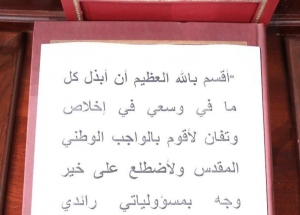 "أقسم بالله العظيم أن أبذل كل
ما في وسعي في إخلاص
وتفان لأقوم بالواجب الوطني
المقدس ولأضطلع على خير
وجه بمسؤولياتي رائدي